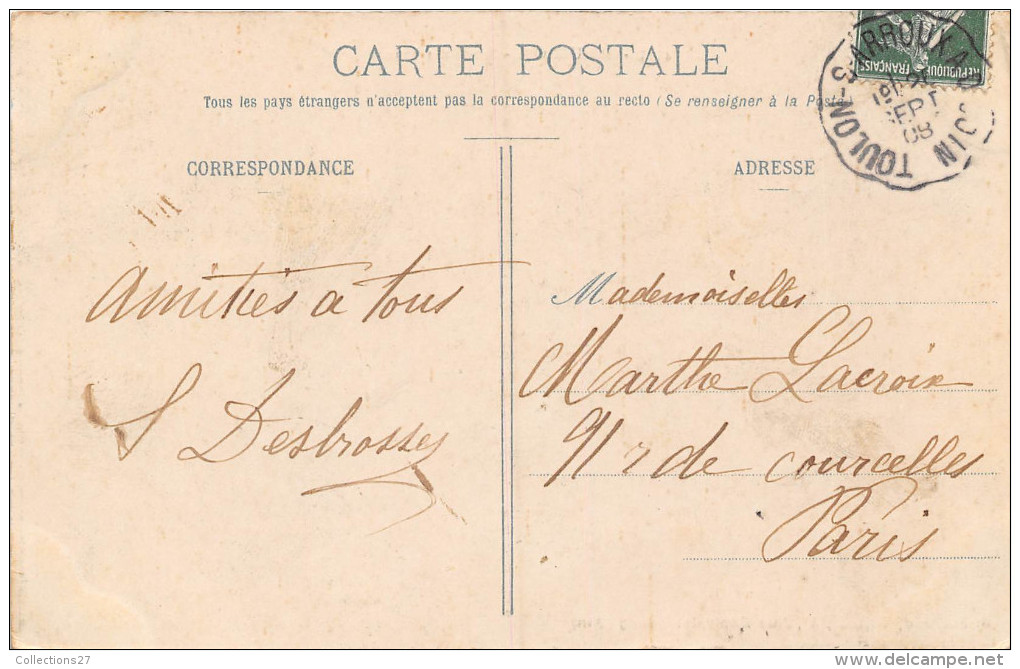 CARTE POSTALE
Tous les pays étrangers n'acceptent pas la correspondance au recto (Se renseigner à la Poste)
CORRESPONDANCE
ADRESSE
REPUBLIQUE FRANÇAISE
TOULON-S-ARROUX A
SEPT
08
Amitiés à tous
S Desbrosses
Mademoiselles
Marthe Lacroix
91 r de courcelles
Paris
Collections27
delcampe.net